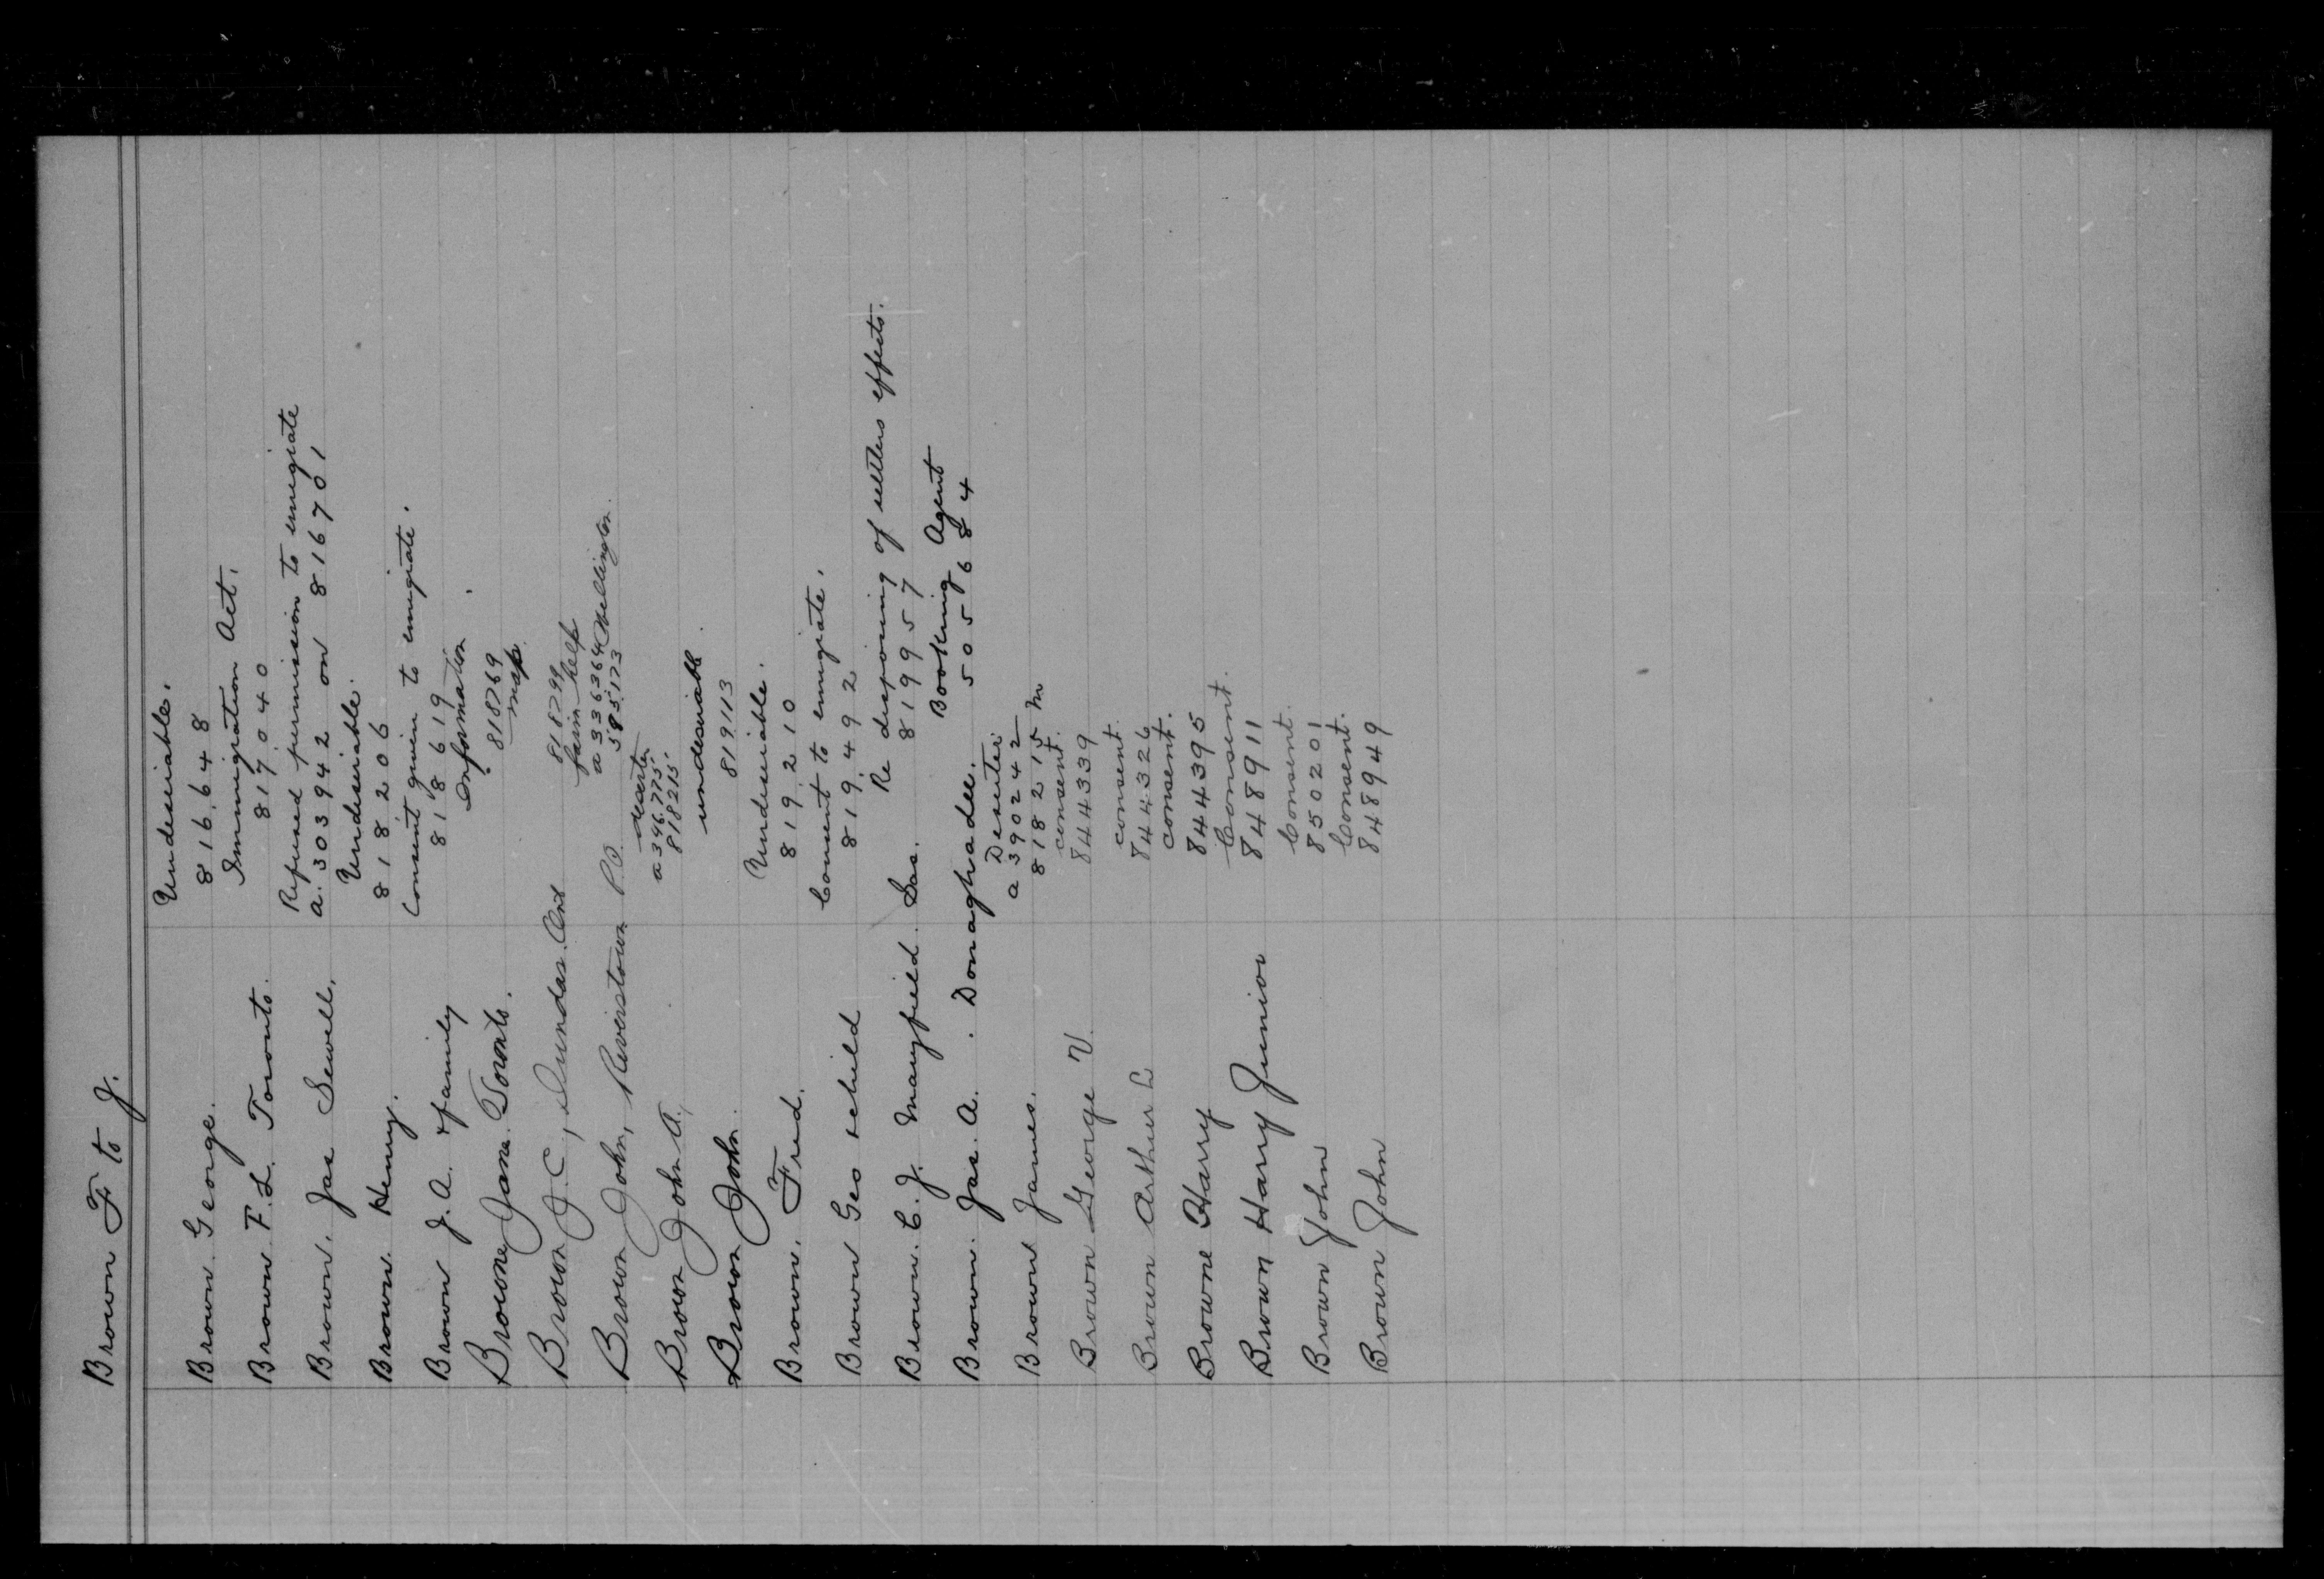 Brown F to J.
Undesirable.
Brown. George. 816648
Immigration Act.
Brown F.L. Toronto. 817040
Refused permission to emigrate
Brown. Jas Sewell. a. 303942 on 816701
Undesirable.
Brown. Henry. 818206
Consent given to emigrate.
Brown J. A. & family 818619
Information.
Browne Jane. Toronto. 818769
map.
Brown J. C., Dundas. Ont 818799
farm help
a 336364 Wellington.
Brown John, Riverstown P.O. 585173
deserter
a 396775
Brown John A. 818215
undesirable.
Brown John. 819113
Undesirable.
Brown. Fred. 819210
Consent to emigrate.
Brown Geo & child 819492
Re disposing of settlers effects.
Brown. C. J. Mayfield. Sas. 819957
Booking Agent
Brown. Jas. A. . Donaghadee. 5055684
Deserter.
a 390242
Brown James. 818215 m
consent.
Brown George V. 844339
consent.
Brown Arthur L 844326
consent.
Browne Harry 844395
Consent.
Brown Harry Junior 848911
Consent.
Brown John 850201
Consent.
Brown John 848949